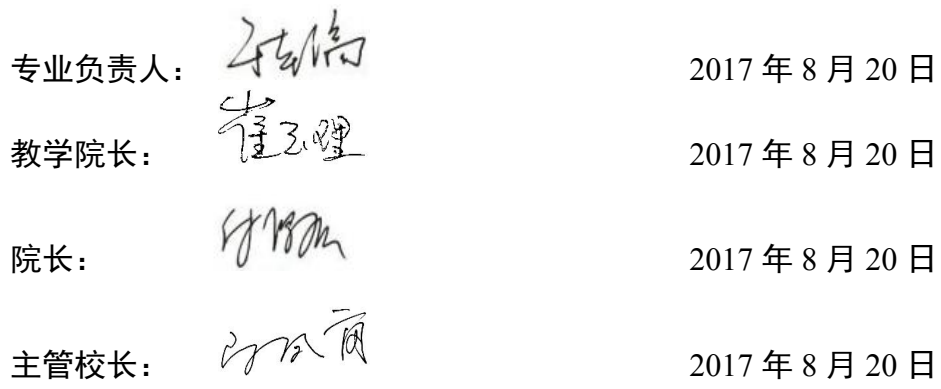 专业负责人： 2017 年 8 月 20 日
教学院长： 崔玉理 2017 年 8 月 20 日
院长： 2017 年 8 月 20 日
主管校长： 2017 年 8 月 20 日